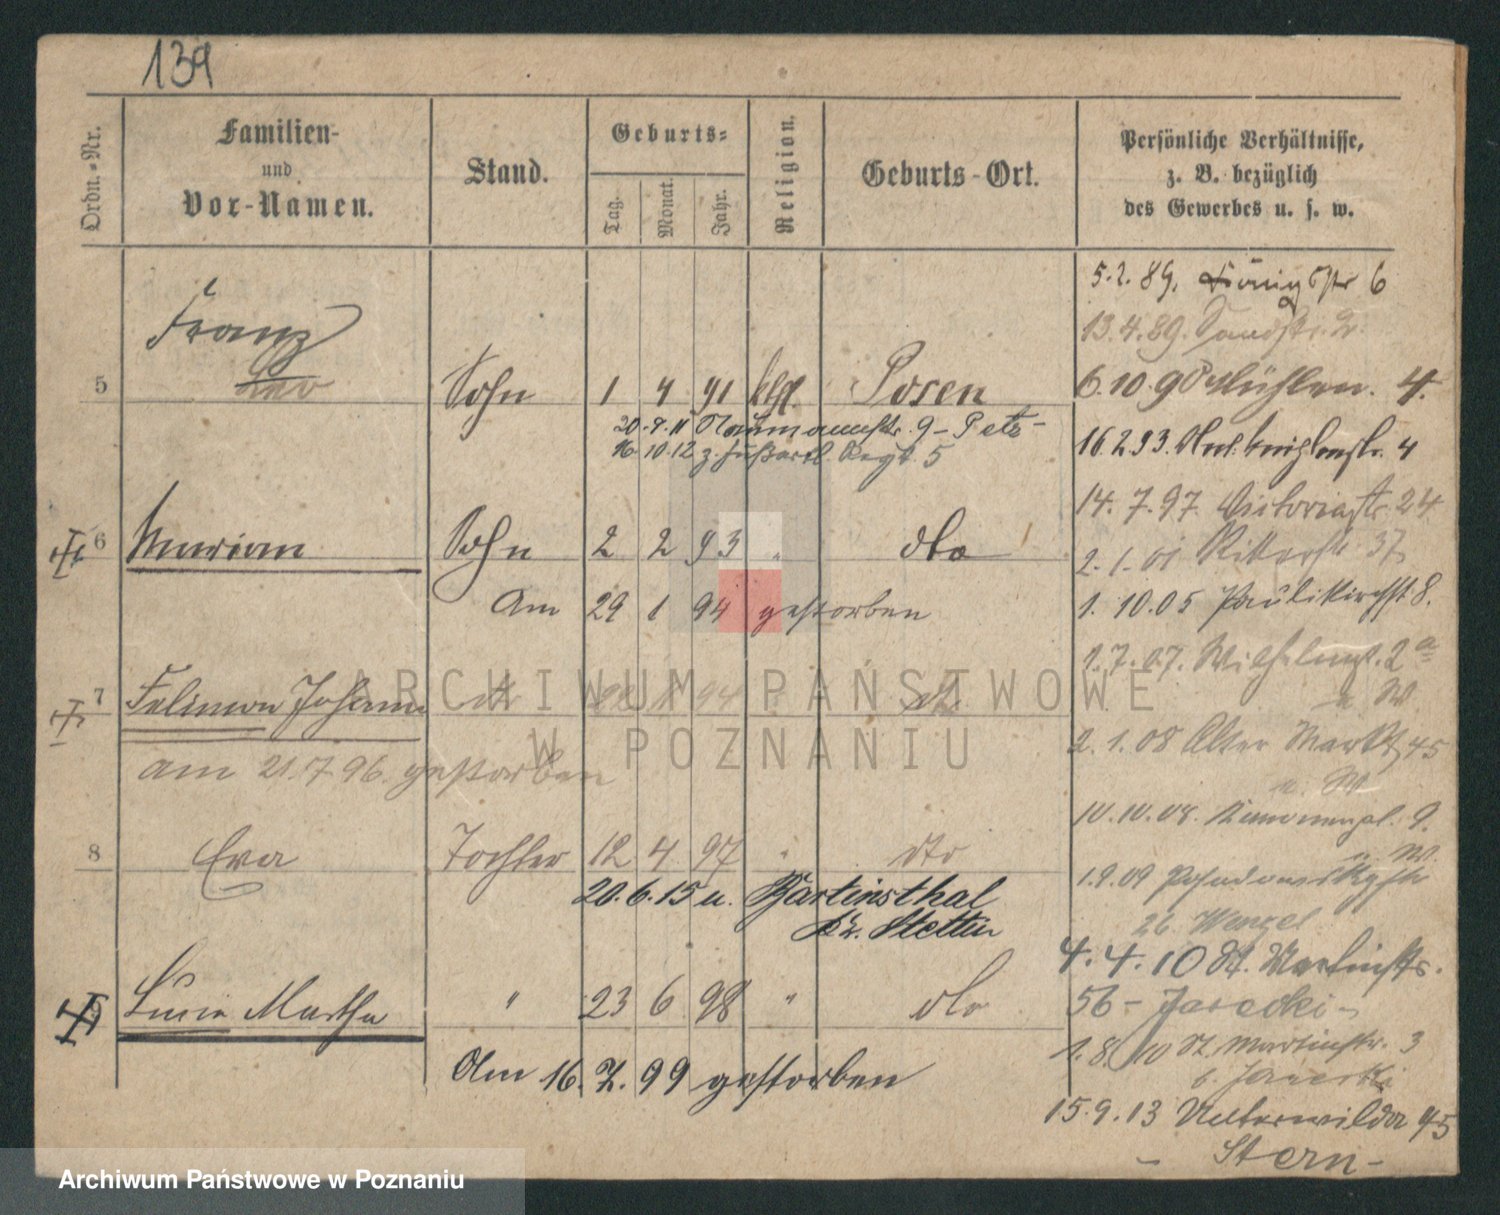 139
Ordn.-Nr.
Familien-
und
Vor-Namen.
Stand.
Geburts-
Tag.
Monat.
Jahr.
Religion.
Geburts-Ort.
Persönliche Verhältnisse,
z. B. bezüglich
des Gewerbes u. s. w.
5 Franz
Leo
Sohn 1 4 91 kth. Posen
20.9.11 Naumannstr. 9 - Petz -
16.10.12 z. Fußartl. Regt. 5
6 Marian Sohn 2 2 93 " dto
Am 29 1 94 gestorben
7 Johann dto 94 dto
am 21.7.96. gestorben
8 Eva Tochter 12 4 97 " dto
20.6.15 u. Martinsthal
Kr. Stettin
Lucia Martha " 23 6 98 " dto
Am 16. 7. 99 gestorben
5.2.89. Königstr 6
13.4.89. Sandstr. 2.
6.10.90 Mühlen. 4.
16.2.93. 4
14.7.97 Victoriastr. 24
2.1.01 Ritterstr. 37
1.10.05 Paulikirchst 8.
1.7.07. Wilhelmspl. 2a
u W
2.1.08 Alter Markt 45
u. W
10.10.08. 9.
u. W.
1.9.09 Posadowskystr
26. Wenzel
4.4.10 St. Martinstr.
56 - Jarecki -
1.8.10 St. Martinstr. 3
b. Jarecki
15.9.13 Unterwilda 45
- Stern -
ARCHIWUM PAŃSTWOWE
W POZNANIU
Archiwum Państwowe w Poznaniu